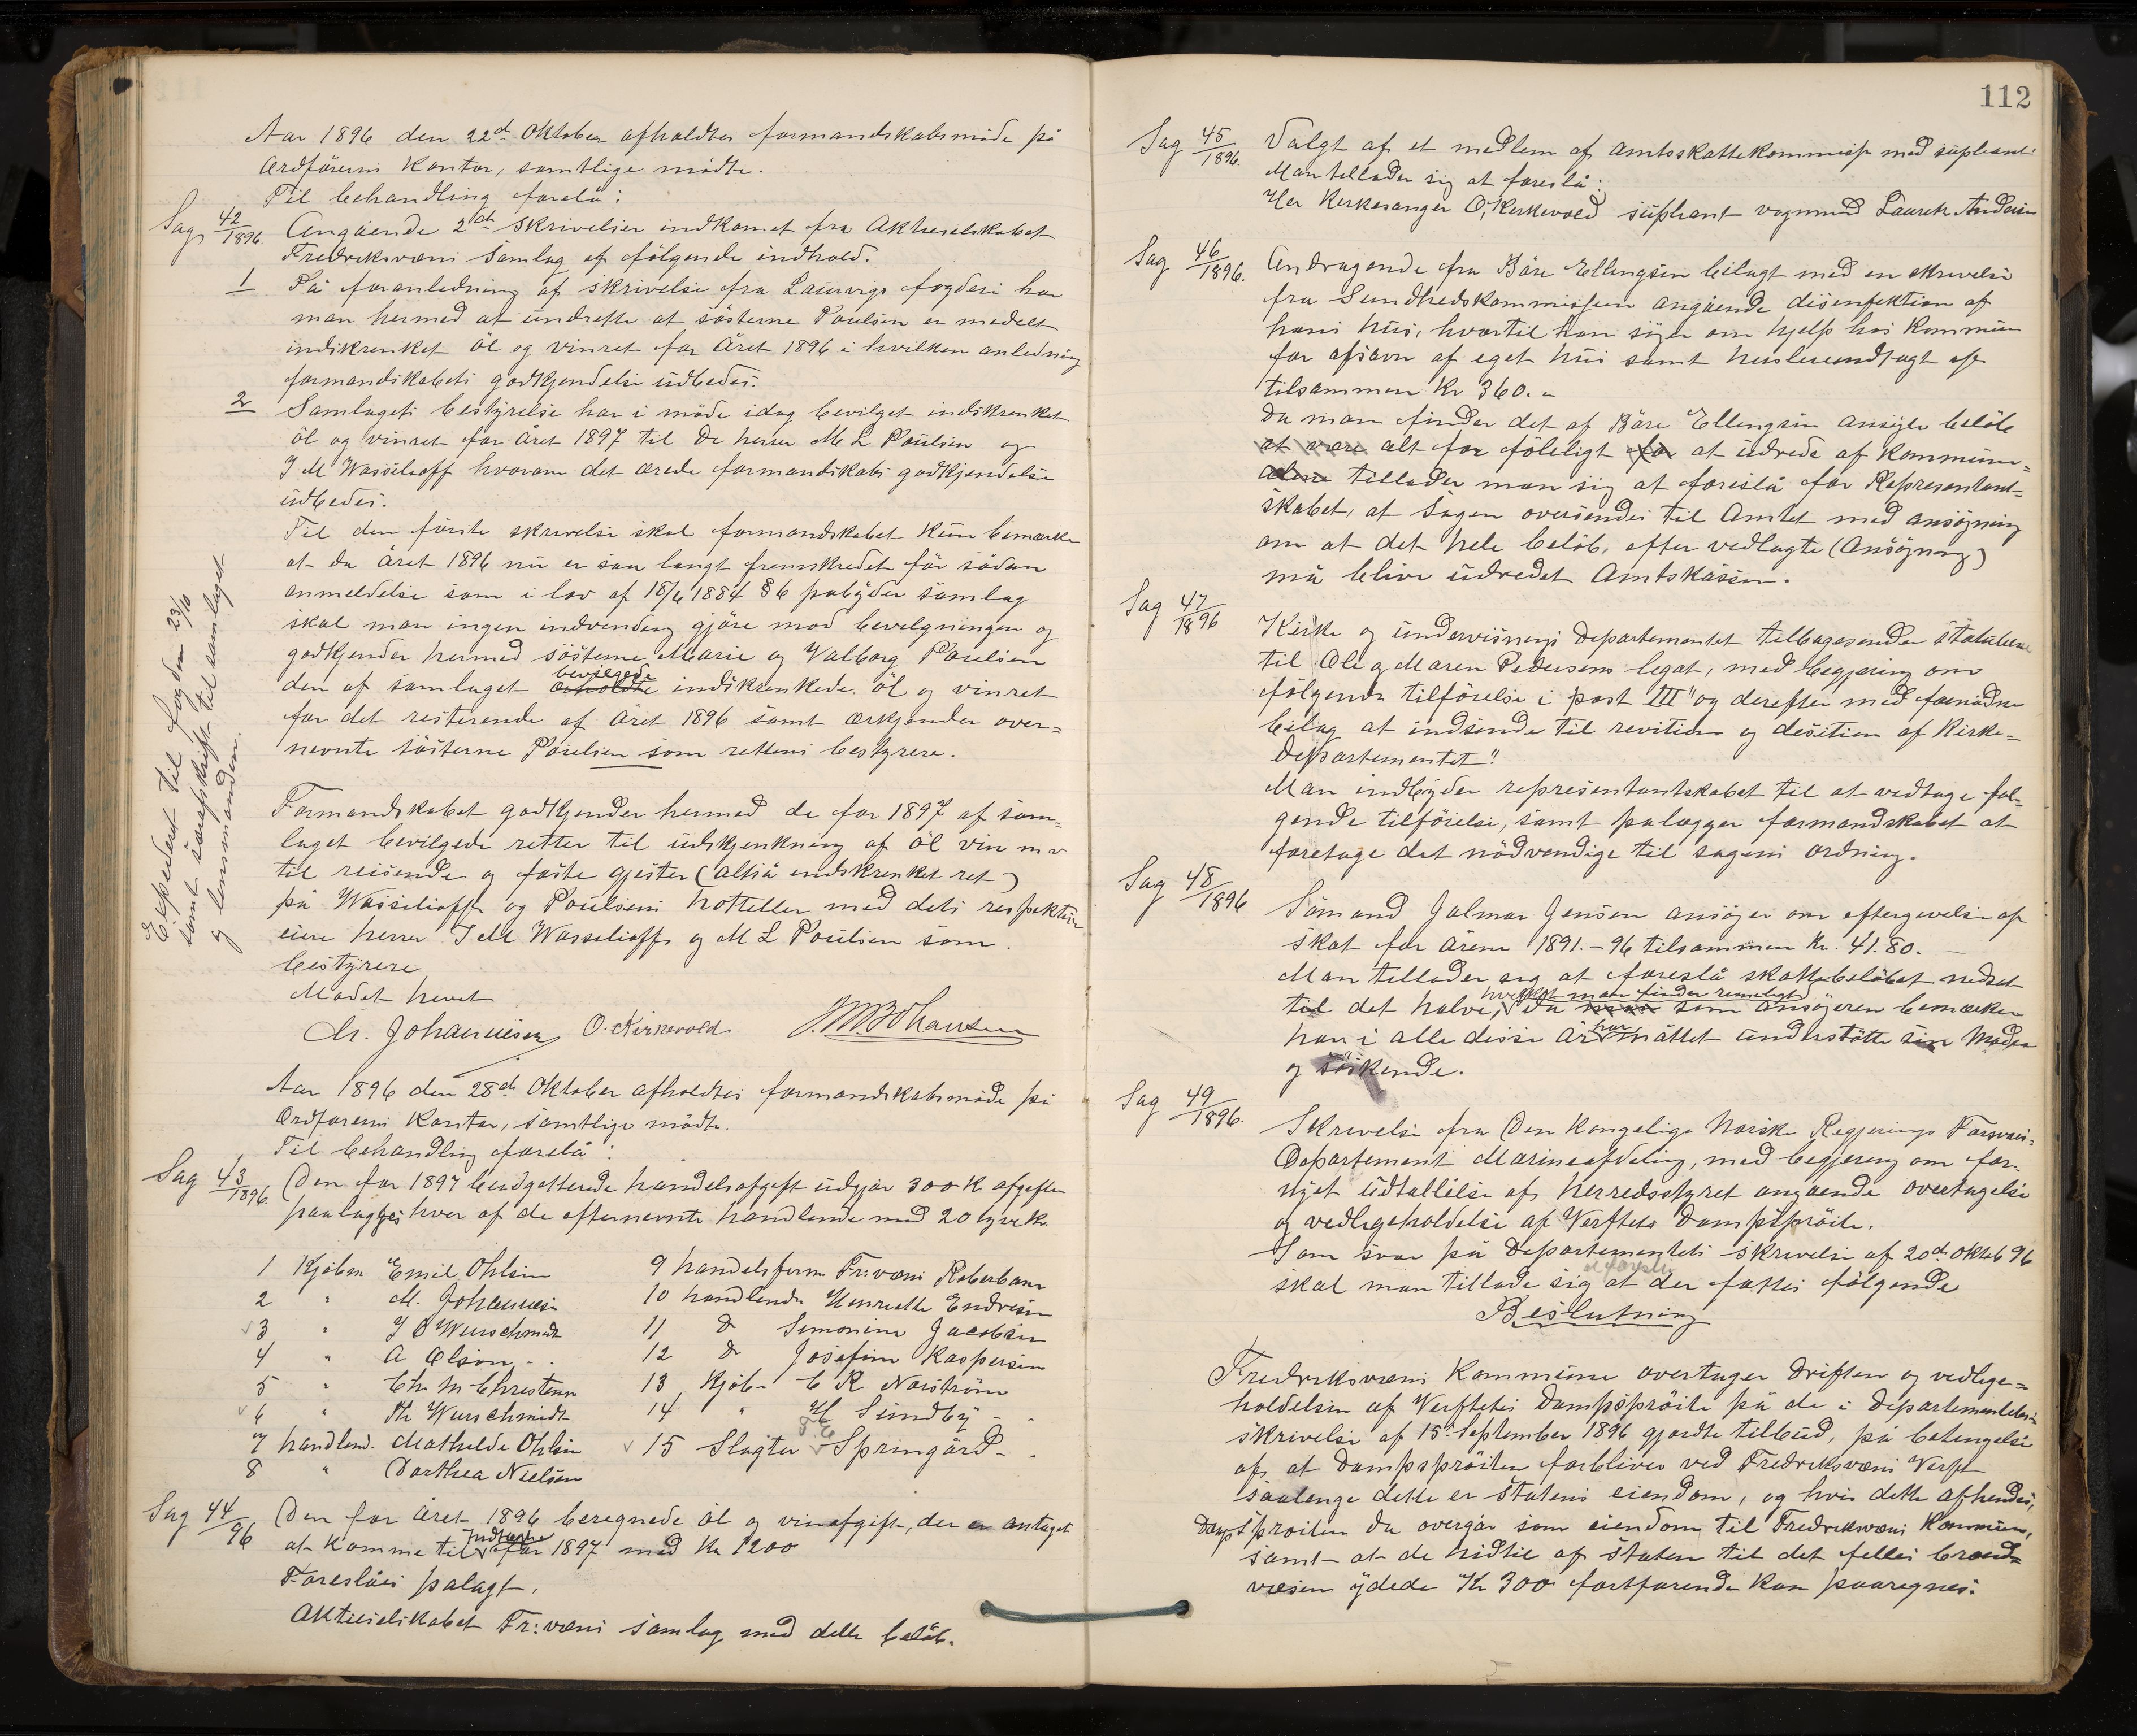 Aar 1896 den 22de Oktober afholdtes formandskabsmöde på
Ordförerens Kontor, samtlige mödte.
Til behandling forelå:
Sag 42/1896. Angående 2de skrivelser indkomet fra Aktieselskabet
Fredriksværns Samlag af fölgende indhold.
1 På foranledning af skrivelse fra Laurvigs fogderi har
man hermed at underrette at söstrene Poulsen er meddelt
indskrenket öl og vinret for Året 1896 i hvilken anledning
formandskabets godkjendelse udbedes.
2 Samlagets bestyrelse har i möde idag bevilget indskrenket
öl og vinret for året 1897 til De herrer M L Poulsen og
J M Wassilioff hvorom det ærede formandskabs godkjendelse
udbedes.
Til den förste skrivelse skal formandskabet kun bemærke
at da Året 1896 nu er saa langt fremskredet för sådan
anmeldelse som i lov af 18/6 1884 § 6 påbyder samlag
skal man ingen indvending gjöre mod bevilgningen og
godkjender hermed söstrene Marie og Valborg Poulsen
den af samlaget bevilgede indskrenkede öl og vinret
for det resterende af Året 1896 samt erkjender over=
nevnte söstrene Poulsen som rettens bestyrere.
Formandskabet godkjender hermed de for 1897 af sam=
laget bevilgede retter til udskjenkning af öl vin m v
til reisende og faste gjester (altså indskrenket ret)
på Wassilioffs og Poulsens hotteller med dets respektive
eiere herrer J M Wassilioff og M L Poulsen som
bestyrere
Mödet hevet
M. Johannesen O. Kirkevold J. M. Johansen
Expederet til fogden 23/10
samt særafskrift til samlaget
og lensmanden.
Aar 1896 den 28de Oktober afholdtes formandskabsmöde på
Ordförerens Kontor, samtlige mödte.
Til behandling forelå:
Sag 43/1896. Den for 1897 budgetterede handelsafgift udgjör 300 K afgiften
paalagges hver af de efternevnte handlende med 20 tyve k.
1 Kjöbm Emil Ohlsen
2 " M. Johannesen
3 " J O Wurschmidt
4 " A Olson
5 " Chr M Christensen
6 " Th Wurschmidt
7 handlend. Mathilde Ohlsen
8 " Dorthea Nielsen
9 handelsferm Fr:værns Roberbane
10 handlende Henriette Endresen
11 do Simonine Jacobsen
12 do Josefine Kaspersen
13 Kjöb- C R Norström
14 " H Sundby
15 Slagter Springård
Sag 44/96 Den for Året 1896 beregnede öl og vinafgift, der er antaget
at komme til Indtægt for 1897 med Kr 1200
Foreslåes pålagt.
Aktieselskabet Fr:værns samlag med dette belöb.
112
Sag 45/1896. Valgt af et medlem af Amtsskattekommissi med supleant
Man tillader sig at foreslå:
Her Kerkesanger O, Kerkevold supleant vognmand Laurits Andersen
Sag 46/1896. Andragende fra Båre Ellengsen bilagt med en skrivelse
fra Sundhedskommissionen angående disenfektion af
hans hus, hvortil han söger om hjelp hos Kommunen
for afsavn af eget hus samt husleieindtægt af
tilsammen Kr 360.-
Da man finder det af Båre Ellengsen ansögte belöb
at være alt for föleligt for at udrede af kommunen=
alene tillader man sig at foreslå for Representant=
skabet, at Sagen oversendes til Amtet med ansögning
om at det hele belöb, efter vedlagte (Ansögning)
må blive udredet Amtskassen.
Sag 47/1896 Kirke og undervisnings Departementet tilbagesender statuterne
til Ole og Maren Pedersens legat, med begjering om
fölgende tilförelse i post III "og derefter med fornödne
bilag at indsende til revition og desition af Kirke=
departementet".
Man indbyder representantskabet til at vedtage föl=
gende tilförelse, samt pålægger formandskabet at
foretage det nödvendige til sagens ordning.
Sag 48/1896 Sömand Jalmar Jensen ansöger om eftergivelse af
skat for årene 1891.-96 tilsammen Kr. 41.80.-
Man tillader sig at foreslå skattebelöbet nedsat
til det halve, hvilket man finder remeligt da man som ansögeren bemærker
han i alle disse år har måttet understötte sin Moder
og söskende.
Sag 49/1896. Skrivelse fra Den kongelige Norske Regjerings Forsvars=
Departement Marineafdeling, med begjering om for-
nyet udtallelse af herredsstyret angående overtagelse
og vedligeholdelse af Verftets Dampspröite.
Som svar på Departementets skrivelse af 20de Oktob 96
skal man tillade sig at foreslå at der fattes fölgende
Beslutning
Fredriksværns Kommune overtager Driften og vedlige=
holdelsen af Verftets Dampspröite på de i Departementets
skrivelse af 15de September 1896 gjordte tilbud, på betingelse
af, at Dampspröiten forbliver ved Fredriksværns Verft
saalenge dette er statens eiendom, og hvis dette afhendes,
Dampspröiten da overgår som eiendom til Fredriksværns Kommune,
samt at de hidtil af staten til det felles brand=
væsen ydede Kr 300 fortfarende kan paaregnes.